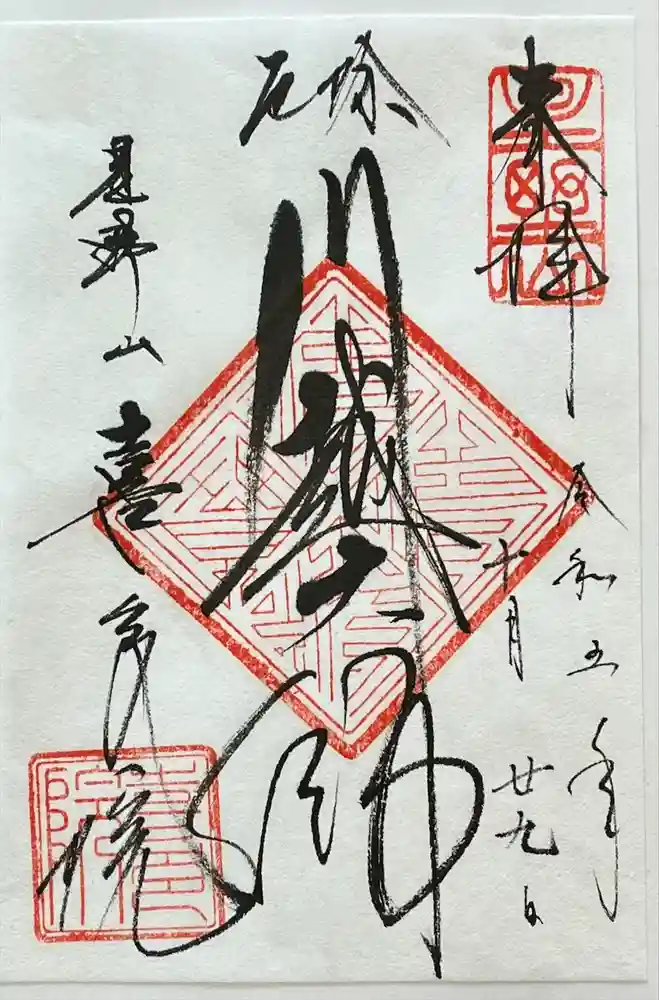 奉拝
令和五年
十月廿九日
厄除
川越大師
星野山
喜多院